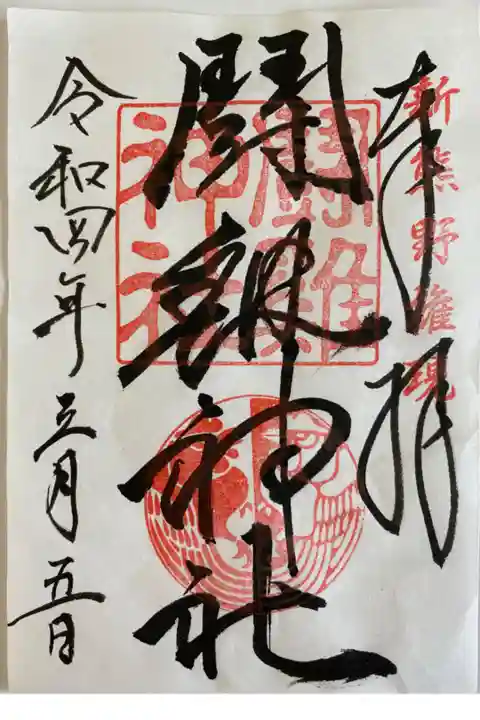 新熊野権現
奉拝
闘雞神社
闘雞神社
令和四年三月五日